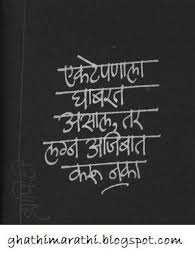 एकटेपणाला
घाबरत
असाल, तर
लग्न अजिबात
करू नका
ghathimarathi.blogspot.com